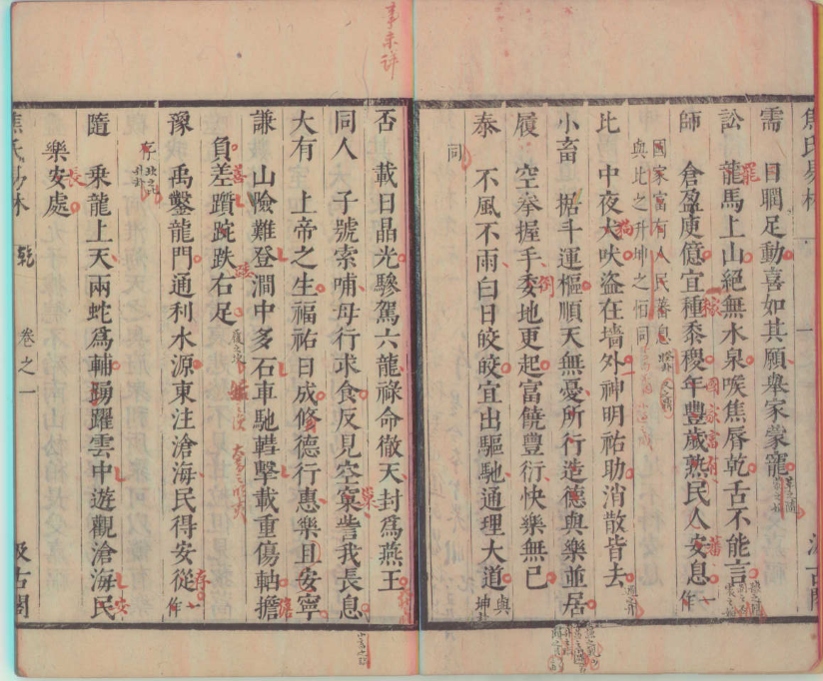 焦氏易林
一
汲古閣
需　目瞤足動喜如其願舉家蒙寵
訟　龍馬上山絕無水泉喉焦唇乾舌不能言
師　倉盈庾億宜種黍稷年豐歲熟民人安息一作
國家富有人民蕃息
與比之升坤之恒同
比　中夜犬吠盜在墻外神明祐助消散皆去
小畜　据斗運樞順天無憂所行造德與樂並居
履　空拳握手委地更起富饒豐衍快樂無已
泰　不風不雨白日皎皎宜出驅馳通理大道與坤
同
事未詳
否　載日晶光驂駕六龍祿命徹天封爲燕王
同人　子號索哺母行求食反見空巢訾我長息
大有　上帝之生福祐日成修德行惠樂且安寧
謙　山險難登澗中多石車馳轊擊載重傷軸擔
負差躓踠跌右足
豫　禹鑿龍門通利水源東注滄海民得安從一作
存
隨　乘龍上天兩蛇爲輔踴躍雲中遊觀滄海民
樂安處
焦氏易林
乾
卷之一
汲古閣